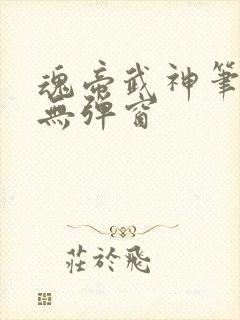 魂帝武神筆
無彈窗
莊於飛